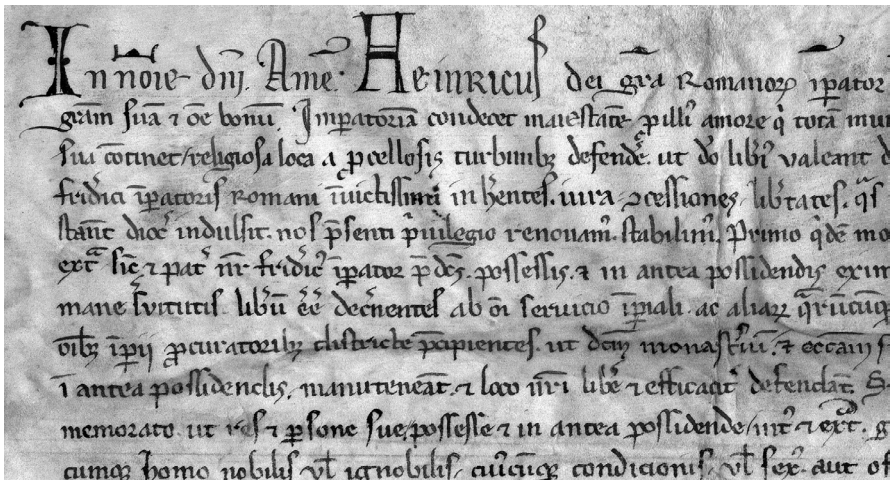 In noīe dn̄i. Ame̅. Heinricus dei gr̄a Romanoꝝ īpator
gr̄am suā ⁊ oē bonū. Imꝑatoriā condecet maiestatē ꝑ illiꝰ amore qͥ totā mun
sua cōtinet / religiosa loca a ꝓcellosis turbinibꝫ defendeͬ. ut do libͥ valeant d
fridͥci īꝑatoris Romani īuictissimi in hͦentes. iura ꝯcessiones, libͬtates. qͣs
stant̄ dioc̄ indulsit. nos p̄senti pͥuilegio renouamꝰ. stabilimꝰ. Primo qͥdē mo
ext̄ sic̄ ⁊ pat̄ nr̄ fridͥcꝰ īꝑator p̄dc̄s. possessis. ⁊ in antea possidendis exim
mane ẜuitutis libͬū eē̄ decͬnentes ab oī seruicio īꝑiali. ac aliaꝝ qͣrūcūqꝫ
oībꝫ īꝑii ꝓcuratoribꝫ districte p̄cipientes. ut dcm̄ monastͬiū. ⁊ eccām
ī antea possidendis, manuteneāt. ⁊ loco nr̄i libͬe ⁊ efficacitͬ defendāt. S
memorato ut res ⁊ ꝑsone sue, possesse ⁊ in antea possidende / intͣ ⁊ extͣ. g
cumqꝫ homo nobilis vl̄ ignobilis, cuiꝰcūqꝫ condicionis, vl̄ sexꝰ. aut of